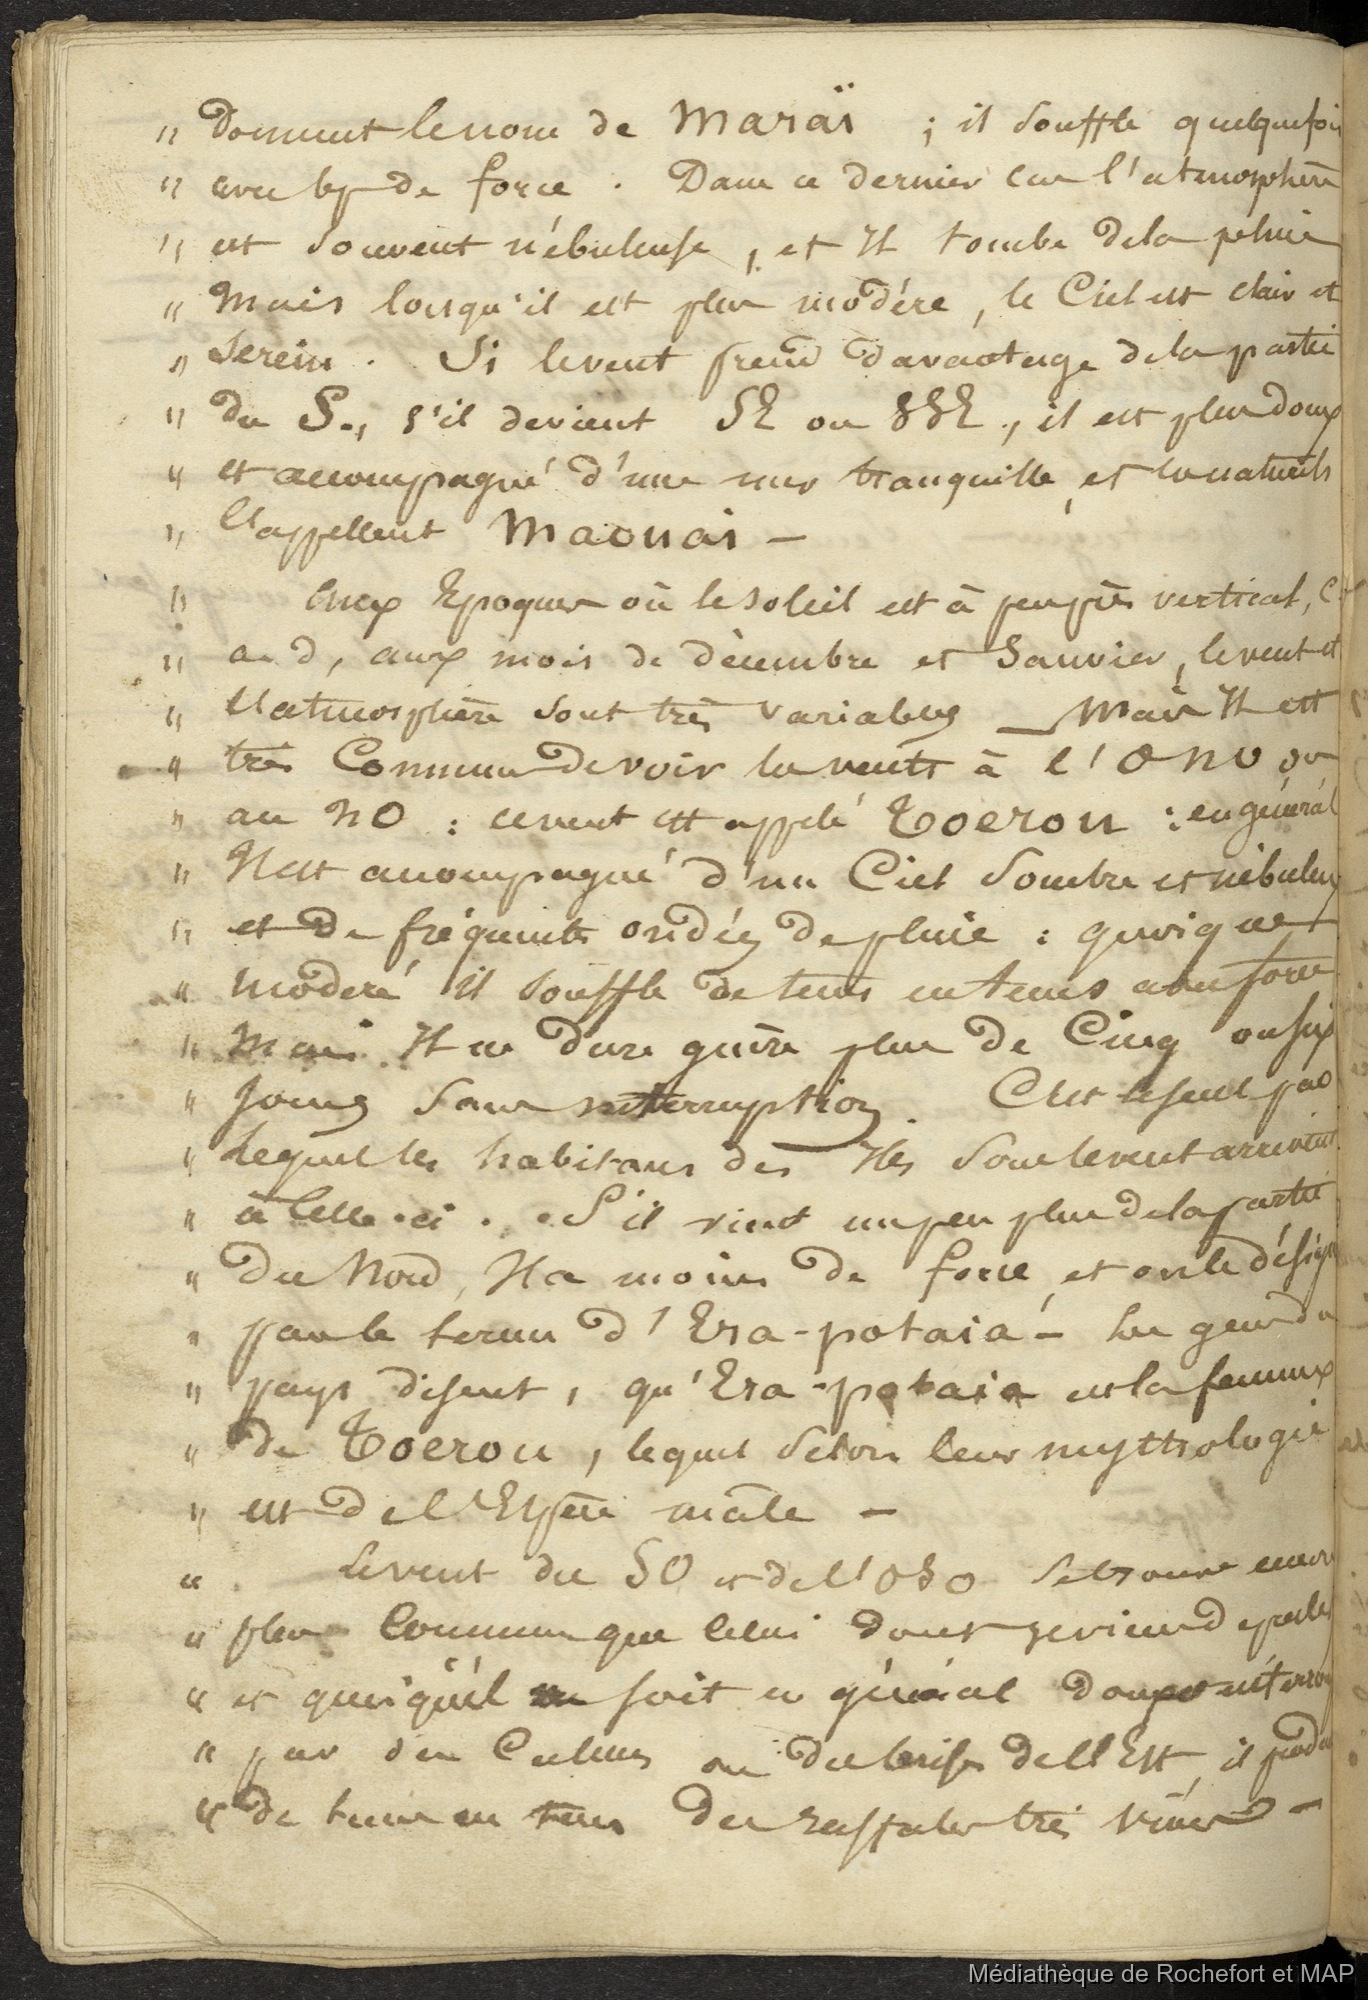 " Donnent le nom de Maraï ; il souffle quelquefois
" avec bp de force . Dans ce dernier cas l'atmosphère
" est souvent nébuleuse , et Il tombe de la pluie
" Mais lorsqu'il est plus modéré , le Ciel est clair et
" Serein . Si le vent prend davantage de la partie
" du S., s'il devient SE ou SSE ., il est plus doux
" et accompagné d'une mer tranquille, et les naturels
" l'appellent Maouai –
" Aux Epoques où le soleil est à peu près vertical, C.
" a. d, aux mois de décembre et Janvier, le vent et
" l'atmosphère sont très variables — Mais Il est
" très Commun de voir les vents à l'ONO ou
" au NO : ce vent est appelé Toerou : en général
" Il est accompagné d'un Ciel sombre et nébuleux
" et de fréquentes ondées de pluie : quoique
" modéré il souffle de tems en tems avec force
" Mais Il ne dure guère plus de Cinq ou six
" Jours sans interruption . C'est le seul par
" Lequel les habitans des Iles sous le vent arrivent
" à Celle-ci . S'il vient un peu plus de la partie
" du Nord, Il a moins de force, et on le désigne
" par le terme d'Era-potaia – Les gens du
" pays disent , qu'Era-potaia est la femme
" de Toerou , lequel selon leur mythologie
" est de l'Espèce mâle –
" Le vent du SO et de l'OSO se trouve encore
" plus Commun que Celui dont je viens de parler
" et quoiqu'il soit en général doux et interrompu
" par des Calmes ou des brises de l'Est, il produit
" de tems en tems des raffales très vives –
Médiathèque de Rochefort et MAP